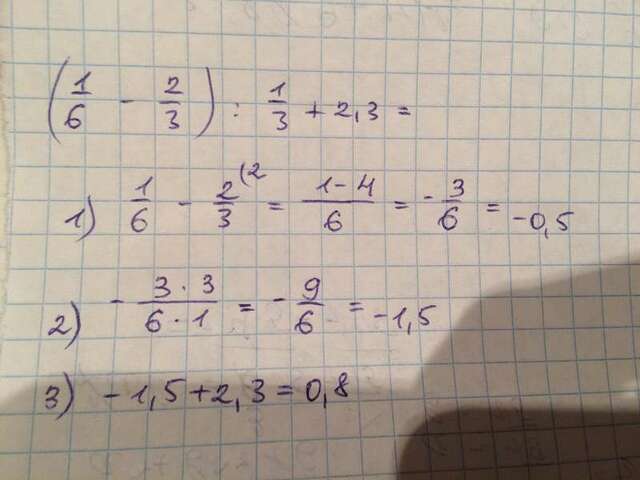 (1/6 - 2/3) : 1/3 + 2,3 =
1) 1/6 - 2/3 (2 = 1-4/6 = -3/6 = -0,5
2) -3·3/6·1 = -9/6 = -1,5
3) -1,5+2,3=0,8